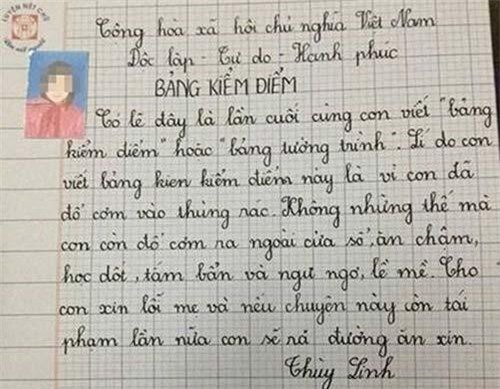 LUYỆN NÉT CHỮ
Cộng hòa xã hội chủ nghĩa Việt Nam
Độc lập - Tự do - Hạnh phúc
BẢNG KIỂM ĐIỂM
Có lẽ đây là lần cuối cùng con viết "bảng
kiểm điểm" hoặc "bảng tường trình". Lí do con
viết bảng kien kiểm điểm này là vì con đã
đổ cơm vào thùng rác. Không những thế mà
con còn đổ cơm ra ngoài cửa sổ, ăn chậm,
học dốt, tắm bẩn và ngu ngơ, lề mề. Cho
con xin lỗi mẹ và nếu chuyện này còn tái
phạm lần nữa con sẽ rả đường ăn xin.
Thùy Linh